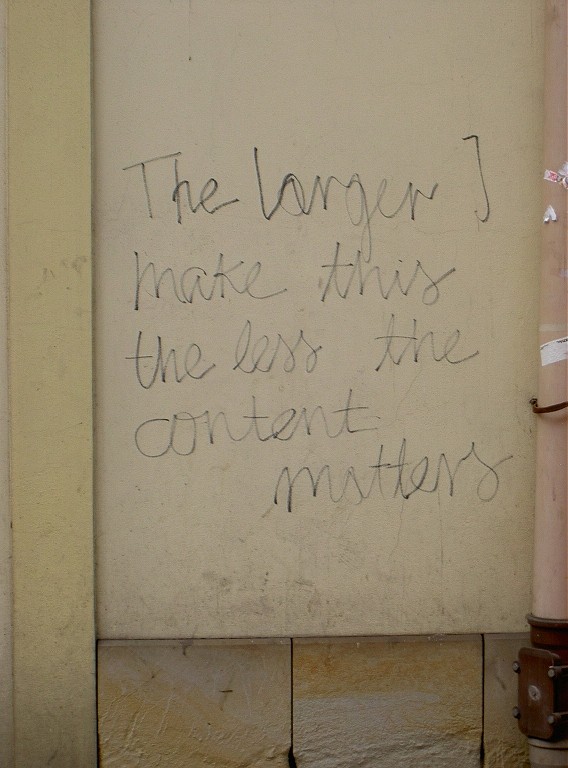 The larger I
make this
the less the
content
matters